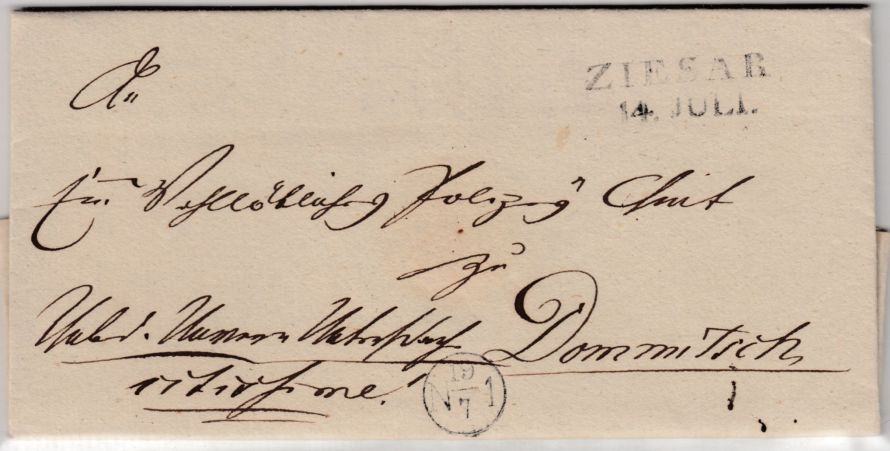 ZIESAR
14. JULI.
An
Ein Wohllöbliches Polizey Amt
zu
Dommitsch
citissime!
N 19/7 1